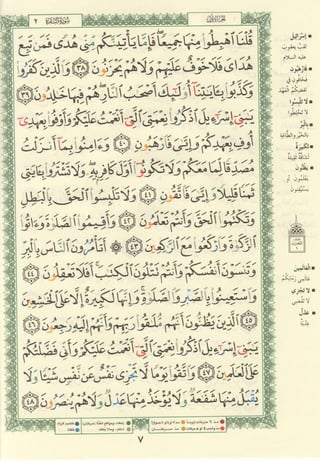 سورة البقرة ٢
الجزء الأول
قُلْنَا ٱهْبِطُوا۟ مِنْهَا جَمِيعًا ۖ فَإِمَّا يَأْتِيَنَّكُم مِّنِّى هُدًى فَمَن تَبِعَ
هُدَاىَ فَلَا خَوْفٌ عَلَيْهِمْ وَلَا هُمْ يَحْزَنُونَ ٣٨ وَٱلَّذِينَ كَفَرُوا۟
وَكَذَّبُوا۟ بِـَٔايَـٰتِنَآ أُو۟لَـٰٓئِكَ أَصْحَـٰبُ ٱلنَّارِ ۖ هُمْ فِيهَا خَـٰلِدُونَ ٣٩
يَـٰبَنِىٓ إِسْرَٰٓءِيلَ ٱذْكُرُوا۟ نِعْمَتِىَ ٱلَّتِىٓ أَنْعَمْتُ عَلَيْكُمْ وَأَوْفُوا۟ بِعَهْدِىٓ
أُوفِ بِعَهْدِكُمْ وَإِيَّـٰىَ فَٱرْهَبُونِ ٤٠ وَءَامِنُوا۟ بِمَآ أَنزَلْتُ
مُصَدِّقًا لِّمَا مَعَكُمْ وَلَا تَكُونُوٓا۟ أَوَّلَ كَافِرٍۭ بِهِۦ ۖ وَلَا تَشْتَرُوا۟ بِـَٔايَـٰتِى
ثَمَنًا قَلِيلًا وَإِيَّـٰىَ فَٱتَّقُونِ ٤١ وَلَا تَلْبِسُوا۟ ٱلْحَقَّ بِٱلْبَـٰطِلِ
وَتَكْتُمُوا۟ ٱلْحَقَّ وَأَنتُمْ تَعْلَمُونَ ٤٢ وَأَقِيمُوا۟ ٱلصَّلَوٰةَ وَءَاتُوا۟
ٱلزَّكَوٰةَ وَٱرْكَعُوا۟ مَعَ ٱلرَّٰكِعِينَ ٤٣ أَتَأْمُرُونَ ٱلنَّاسَ بِٱلْبِرِّ
وَتَنسَوْنَ أَنفُسَكُمْ وَأَنتُمْ تَتْلُونَ ٱلْكِتَـٰبَ ۚ أَفَلَا تَعْقِلُونَ ٤٤
وَٱسْتَعِينُوا۟ بِٱلصَّبْرِ وَٱلصَّلَوٰةِ ۚ وَإِنَّهَا لَكَبِيرَةٌ إِلَّا عَلَى ٱلْخَـٰشِعِينَ
٤٥ ٱلَّذِينَ يَظُنُّونَ أَنَّهُم مُّلَـٰقُوا۟ رَبِّهِمْ وَأَنَّهُمْ إِلَيْهِ رَٰجِعُونَ ٤٦
يَـٰبَنِىٓ إِسْرَٰٓءِيلَ ٱذْكُرُوا۟ نِعْمَتِىَ ٱلَّتِىٓ أَنْعَمْتُ عَلَيْكُمْ وَأَنِّى فَضَّلْتُكُمْ
عَلَى ٱلْعَـٰلَمِينَ ٤٧ وَٱتَّقُوا۟ يَوْمًا لَّا تَجْزِى نَفْسٌ عَن نَّفْسٍ شَيْـًٔا وَلَا
يُقْبَلُ مِنْهَا شَفَـٰعَةٌ وَلَا يُؤْخَذُ مِنْهَا عَدْلٌ وَلَا هُمْ يُنصَرُونَ ٤٨
٧
إسرائيل
لقب يعقوب
عليه السلام
فارهبون
لا تلبسوا
لا تخلطوا
بالبر
لكبيرة
يظنون
العالمين
لا تجزي
لا تقضي
عدل
فدية